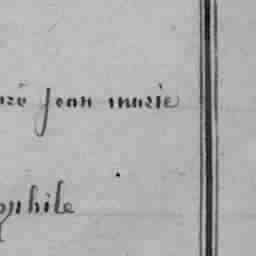 jean marie
ophile